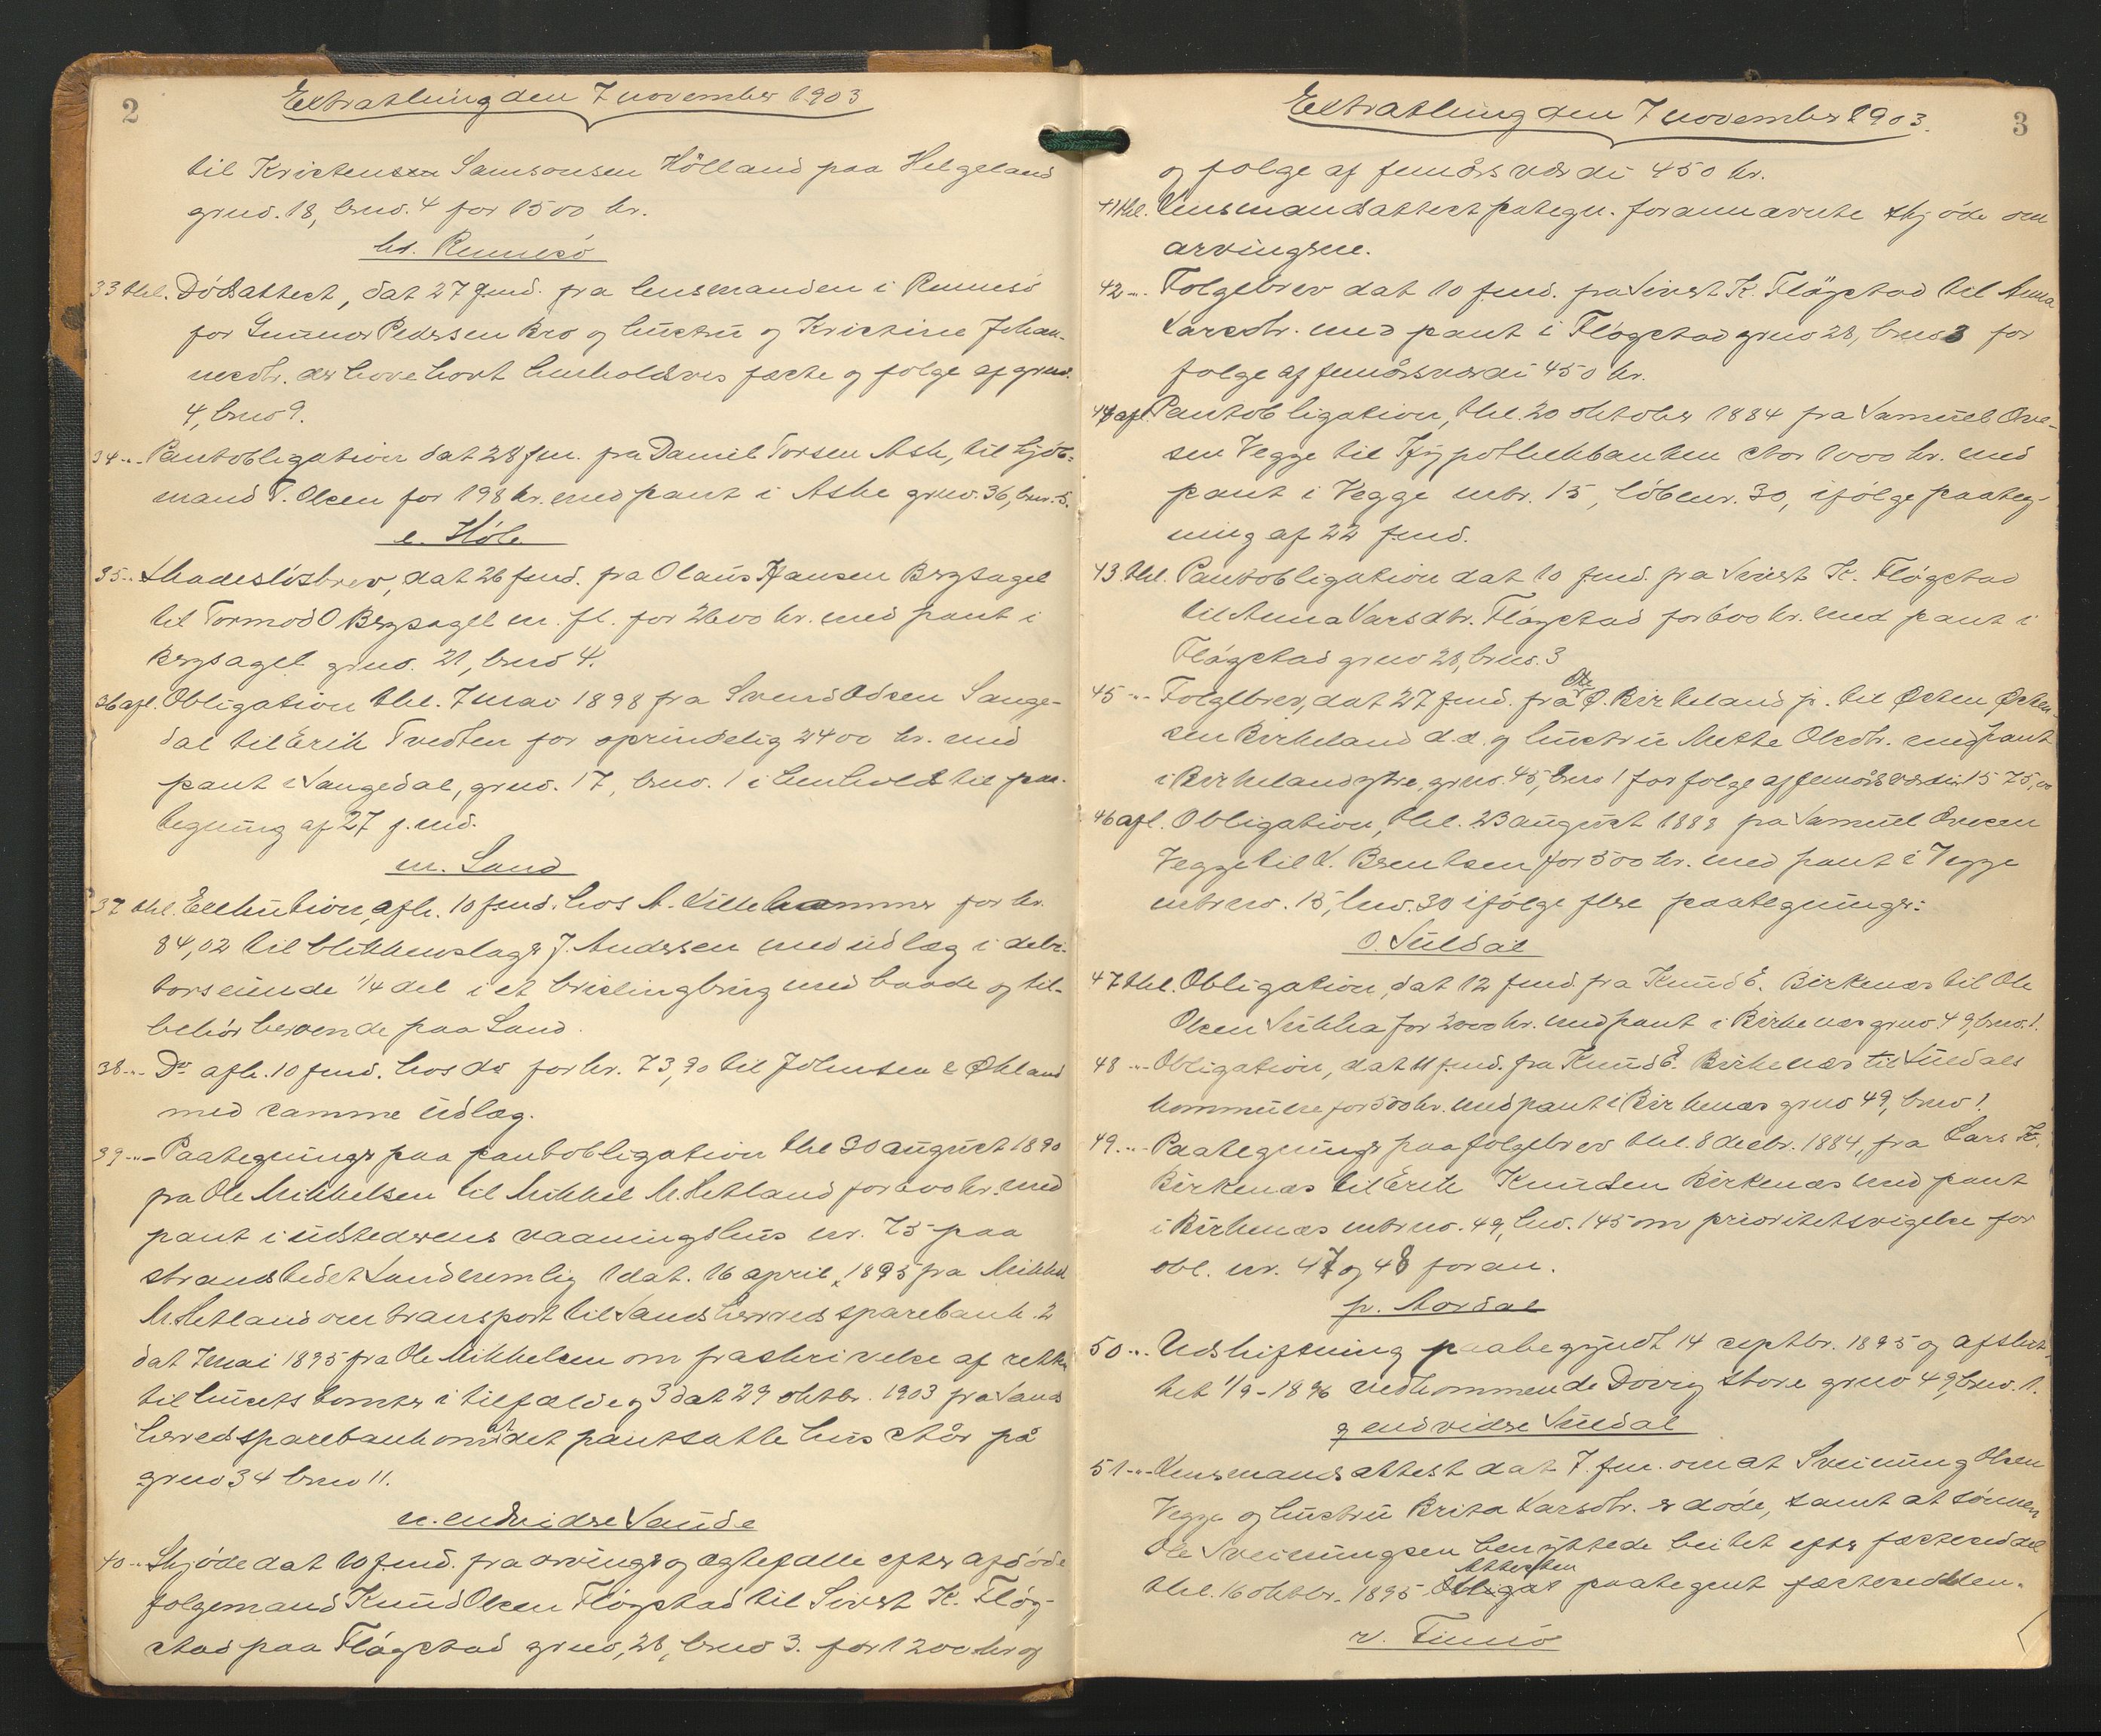 2
Extrathing den 7 november 1903
til Kristensen Samsonsen Hölland paa Helgeland
gruno. 18, bruno. 4 for 1500 kr.
hd. Rennesö
33 thl. Dödsattest, dat 27 f.md. fra lensmanden i Rennesö
for Gunnar Pedersen Bro og hustru og Kristine Johan-
nesdtr. der have havt henholdsvis fæste og følge af gruno.
4, bruno 9.
34 -"- Pantobligation dat 28 f.m. fra Daniel Torsen Ask, til Kjöb-
mand T. Olsen for 198 kr. med pant i Aske gruno. 36, bno. 5.
e. Höle
35 -"- Skadeslösbrev, dat 26 f.md. fra Olaus Hansen Bergsagel
til Tormod O Bergsagel m. fl. for 2600 kr. med pant i
Bergsagel gruno. 21, bruno 4.
36 afl. Obligation thl. 7 mai 1898 fra Svend Odsen Sange-
dal til Erik Tvedten for oprindelig 2400 kr. med
pant i Sangedal, gruno. 17, bruno. 1 i henhold til paa-
tegning af 27 f.md.
m. Sand
37 thl. Exekution, afh. 10 f.md. hos A. Lillehammer for kr.
84,02 til blikkenslager J. Andersen med udlæg i debi-
torseiende 1/4 del i et brislingbrug med baade og til-
behör beroende paa Sand.
38 -"- Do afh. 10 f.md. hos do for kr. 73,90 til Johnsen & Økland
med samme udlæg.
39 -"- Paategninger paa pantobligation thl 30 august 1890
fra Ole Mikkelsen til Mikkel M. Hetland for 600 kr. med
pant i udstederens vaaningshus nr. 75 paa
strandstedet Sand nemlig 1 dat. 16 april 1895 fra Mikkel
M. Hetland om transport til Sands herreds sparebank. 2
dat 7 mai 1895 fra Ole Mikkelsen om fraskrivelse af retten
til husets tomter i tilfælde og 3 dat 29 oktbr. 1903 fra Sands
herreds sparebank om at det pantsatte hus står på
gruno 34 bruno 11.
n. endvidere Saude
40 -"- Skjöde dat 10 f.md. fra arvinger og ægtefælle efter afdöde
folgemand Knud Olsen Flögstad til Sivert K. Flög-
stad paa Flögstad gruno, 28, bruno 3. for 1200 kr og
3
Extrathing den 7 november 1903.
og folge af femårsværdi 450 kr.
41 thl. Lensmandsattest pategn. forannævnte skjöde om
arvingerne.
42 -"- Folgebrev dat 10 f.md. fra Sivert K. Flögstad til Anna
Larsdtr. med pant i Flögstad gruno 28, bruno 3 for
folge af femårsværdi 450 kr.
44 afl. Pantobligation, thl. 20 oktober 1884 fra Samuel Ove-
sen Vegge til Hypothekbanken stor 1000 kr. med
pant i Vegge mtr. 15, löbenr. 30, ifölge paateg-
ning af 22 f.md.
43 thl. Pantobligation dat 10 f.md. fra Sivert K. Flögstad
til Anna Larsdtr. Flögstad for 600 kr. med pant i
Flögstad gruno 28, bruno. 3
45 -"- Folgebrev, dat 27 f.md. fra Ole O. Birkeland jr. til Østen Østen-
sen Birkeland d.æ. og hustru Mette Olsdtr. med pant
i Birkeland ytre, gruno. 45, bruno 1 for folge af femårsværdi 1575,00
46 afl. Obligation, thl. 23 august 1883 fra Samuel Ovesen
Vegge til K. Berntsen for 500 kr. med pant i Vegge
mtrno. 15, lno. 30 ifölge flere paategninger:
o. Suldal
47 thl. Obligation, dat 12 f.md. fra Knud E. Birkenæs til Ole
Olsen Sukka for 2000 kr. med pant i Birkenæs gruno 49, bruno. 1.
48 -"- Obligation, dat 11 f.md. fra Knud E. Birkenæs til Suldals
kommune for 500 kr. med pant i Birkenæs gruno 49, bruno 1.
49 -"- Paategninger paa folgebrev thl. 8 decbr. 1884, fra Lars K.
Birkenæs til Erik Knudsen Birkenæs med pant
i Birkenæs mtrno. 49, lno. 145 om prioritetsvigelse for
obl. nr. 47 og 48 foran.
p. Aardal
50 -"- Udskiftning paabegyndt 14 septbr. 1895 og afslut-
tet 1/9-1896 vedkommende Dovrig store gruno 49, bruno. 1.
q endvidere Suldal
51 -"- Lensmandsattest dat 7. f.m. om at Sveinung Olsen
Vegge og hustru Brita Larsdtr. er döde, samt at sönnen
Ole Sveinungsen benyttede beitet efter fæsteseddel
thl. 16 oktbr. 1895. Obligat Attesten paategnet fæsteseddelen.
r. Finnö